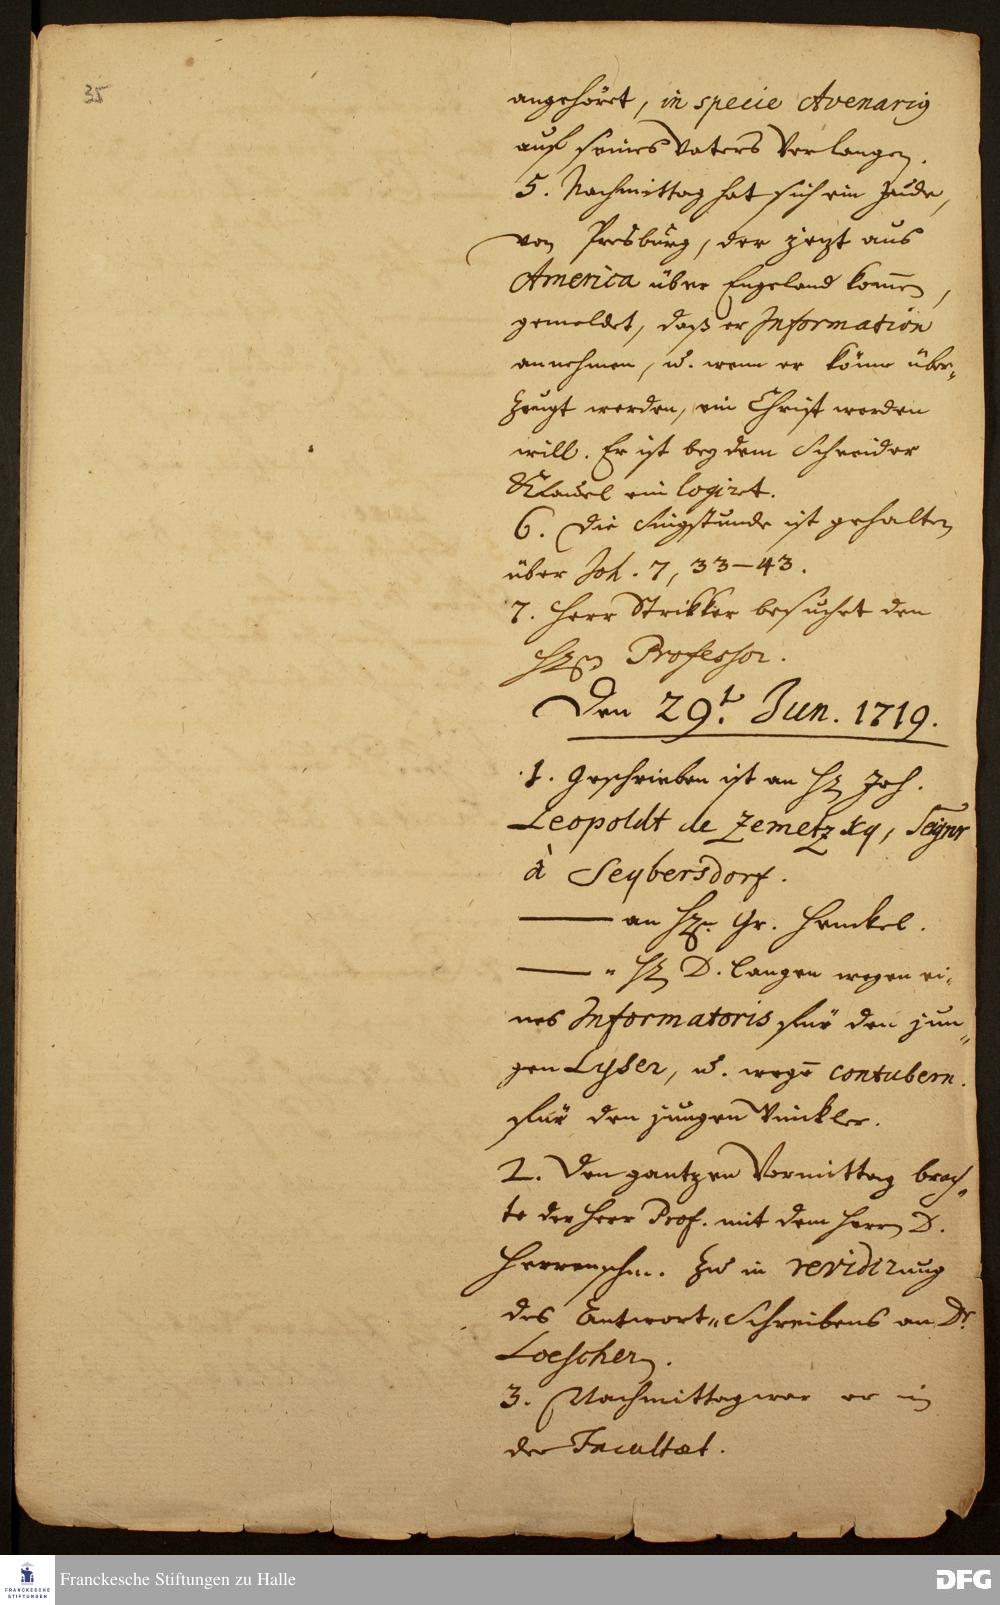 35
angehöret, in specie Avenarig
auf seines Vaters Verlangen.
5. Nachmittag hat sich ein Jude,
von Presburg, der jezt aus
America über Engeland kom̄en,
gemeldet, daß er Information
annehmen, u. wenn er könne über„
zeugt werden, ein Christ werden
will. Er ist bey dem Schneider
Klauel ein logiret.
6. Die Singstunde ist gehalten
über Joh. 7, 33–43.
7. Herr Strikker besuchet den
Hrn Professor.
Den 29t. Jun. 1719.
1. Geschrieben ist an Hr Joh.
Leopoldt de Zemetzky, Seignr
à Seybersdorf.
—— an Hrn. Gr. Henckel.
—— „ Hr D. Langen wegen ei„
nes Informatoris für den jun„
gen Lyser, u. wegē contubern.
für den jungen Winkler.
2. Den gantzen Vormittag brach„
te der Herr Prof. mit dem Herrn D.
Herrnschm. zu in revidirung
des Antwort„Schreibens an Dr.
Loeschern.
3. Nachmittag war er in
der Facultæt.
Franckesche Stiftungen zu Halle
FRANCKESCHE
STIFTUNGEN
DFG